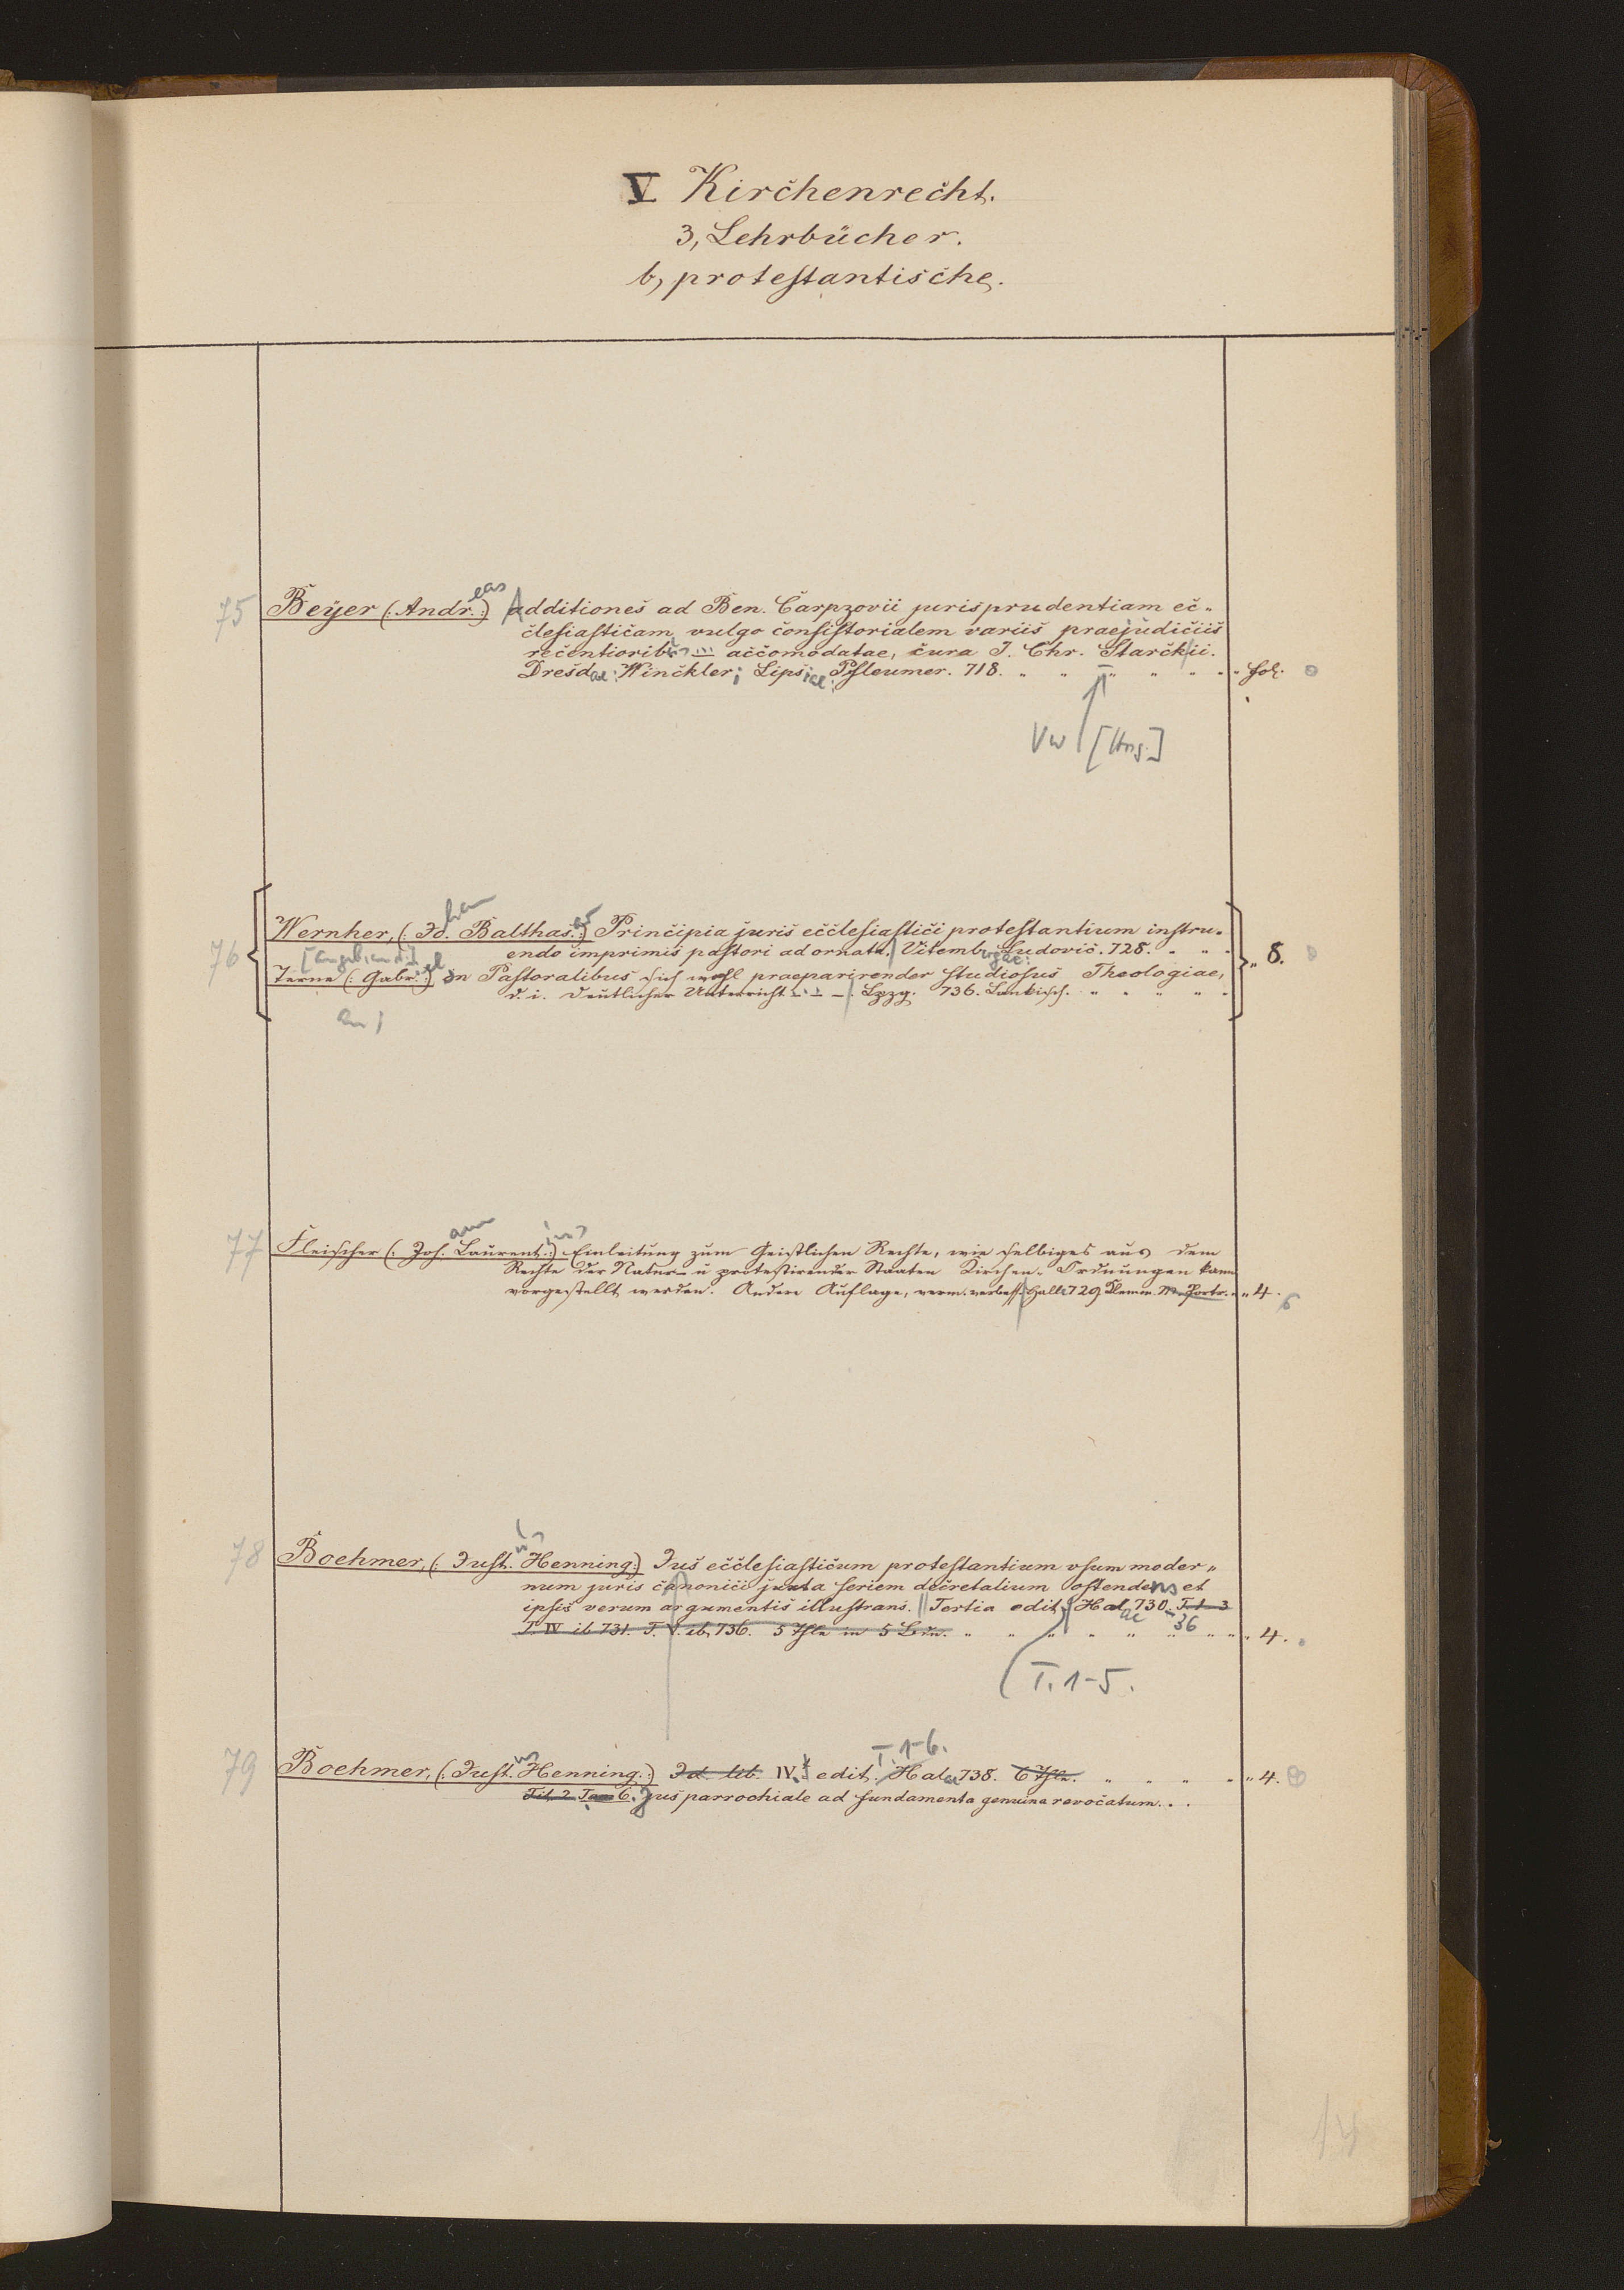 V Kirchenrecht.
3, Lehrbücher.
b, protestantische.
75 Beyer (: Andr.eas :) Additiones ad Ben. Carpzovii jurisprudentiam ec-
clesiasticam vulgo consistorialem variis praejudiciis
recentioribus ... accomodatae, cura J. Chr. Starckii.
Dresdae: Winckler; Lipsiae: Pfleumer. 718. " " " " " " " fol.
Vw [Hrsg.]
76 Wernher, (: Jo.han Balthas.ar :) Principia juris ecclesiastici protestantium instru-
endo imprimis pastori adornata. Vitembergae: Ludovic. 728. " " " 8.
[angebunden:]
Terne (: Gabr.iel :) In Pastoralibus sich wohl praeparirender Studiosus Theologiae,
d. i. deutlicher Unterricht ... Lpzg. 736. Lankisch. " " " " "
An:
77 Fleischer (: Joh.ann Laurent.ius :) Einleitung zum Geistlichen Rechte, wie selbiges aus dem
Rechte der Natur- u protestirender Staaten Kirchen-Ordnungen kann
vorgestellt werden. Andere Auflage, verm. verbess. Halle 729. M. Portr. " " 4.
78 Boehmer, (: Just.us Henning :) Jus ecclesiasticum protestantium vsum moder-
num juris canonici juxta seriem decretalium ostendens et
ipsis rerum argumentis illustrans. Tertia edit. Halae 730 - T. 1-3
T. IV ib 731. T. V. ib, 736. 5 Thle in 5 Bdn. " " " " " 36 " " " 4.
T. 1-5.
T. 1-6.
79 Boehmer, (: Just.us Henning. :) Id. lib. IV. edit. Halae 738. 6 Thle. " " " " " 4.
Tit. 2 Tom 6. Jus parrochiale ad fundamenta genuina revocatum. . .
14